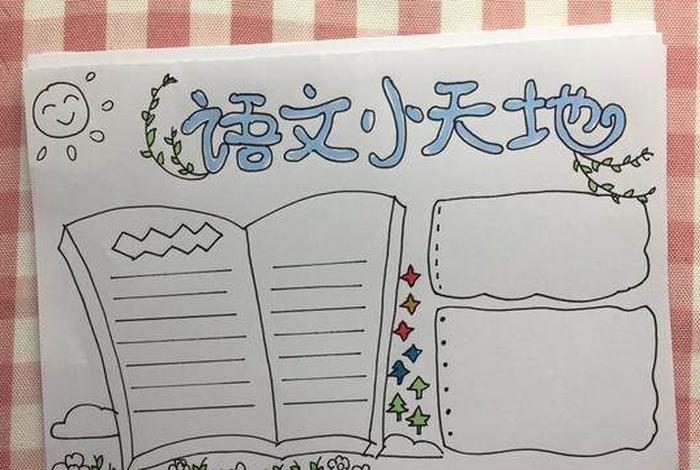 语文小天地